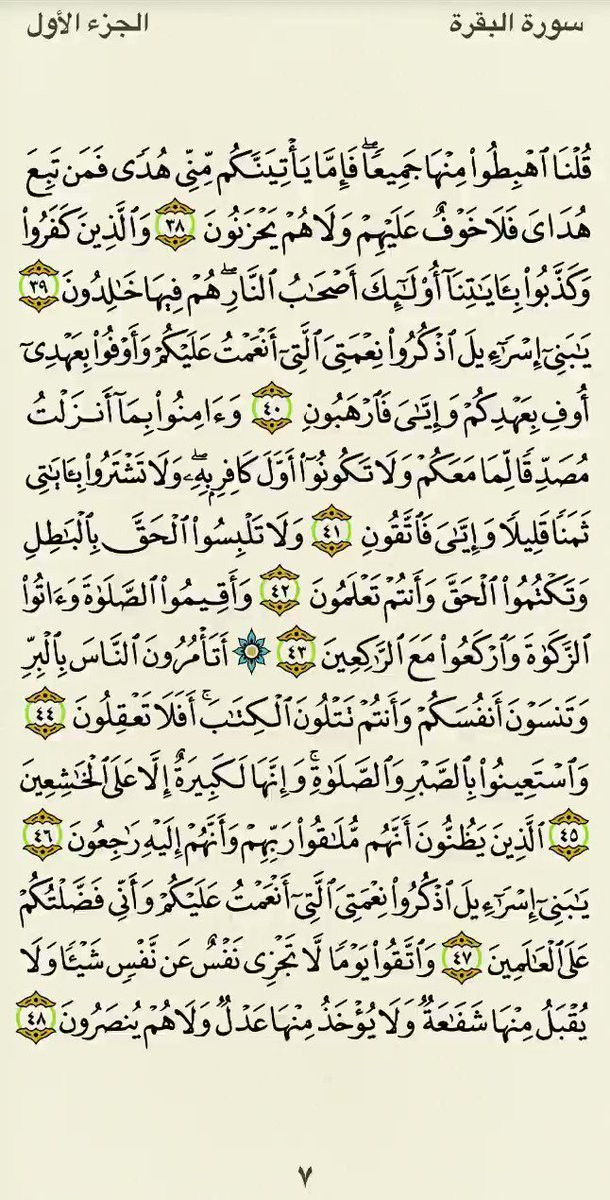 سورة البقرة
الجزء الأول
قُلۡنَا ٱهۡبِطُواْ مِنۡهَا جَمِيعٗاۖ فَإِمَّا يَأۡتِيَنَّكُم مِّنِّي هُدٗى فَمَن تَبِعَ
هُدَايَ فَلَا خَوۡفٌ عَلَيۡهِمۡ وَلَا هُمۡ يَحۡزَنُونَ ٣٨ وَٱلَّذِينَ كَفَرُواْ
وَكَذَّبُواْ بِـَٔايَٰتِنَآ أُوْلَٰٓئِكَ أَصۡحَٰبُ ٱلنَّارِۖ هُمۡ فِيهَا خَٰلِدُونَ ٣٩
يَٰبَنِيٓ إِسۡرَٰٓءِيلَ ٱذۡكُرُواْ نِعۡمَتِيَ ٱلَّتِيٓ أَنۡعَمۡتُ عَلَيۡكُمۡ وَأَوۡفُواْ بِعَهۡدِيٓ
أُوفِ بِعَهۡدِكُمۡ وَإِيَّٰيَ فَٱرۡهَبُونِ ٤٠ وَءَامِنُواْ بِمَآ أَنزَلۡتُ
مُصَدِّقٗا لِّمَا مَعَكُمۡ وَلَا تَكُونُوٓاْ أَوَّلَ كَافِرِۭ بِهِۦۖ وَلَا تَشۡتَرُواْ بِـَٔايَٰتِي
ثَمَنٗا قَلِيلٗا وَإِيَّٰيَ فَٱتَّقُونِ ٤١ وَلَا تَلۡبِسُواْ ٱلۡحَقَّ بِٱلۡبَٰطِلِ
وَتَكۡتُمُواْ ٱلۡحَقَّ وَأَنتُمۡ تَعۡلَمُونَ ٤٢ وَأَقِيمُواْ ٱلصَّلَوٰةَ وَءَاتُواْ
ٱلزَّكَوٰةَ وَٱرۡكَعُواْ مَعَ ٱلرَّٰكِعِينَ ٤٣ أَتَأۡمُرُونَ ٱلنَّاسَ بِٱلۡبِرِّ
وَتَنسَوۡنَ أَنفُسَكُمۡ وَأَنتُمۡ تَتۡلُونَ ٱلۡكِتَٰبَۚ أَفَلَا تَعۡقِلُونَ ٤٤
وَٱسۡتَعِينُواْ بِٱلصَّبۡرِ وَٱلصَّلَوٰةِۚ وَإِنَّهَا لَكَبِيرَةٌ إِلَّا عَلَى ٱلۡخَٰشِعِينَ
٤٥ ٱلَّذِينَ يَظُنُّونَ أَنَّهُم مُّلَٰقُواْ رَبِّهِمۡ وَأَنَّهُمۡ إِلَيۡهِ رَٰجِعُونَ ٤٦
يَٰبَنِيٓ إِسۡرَٰٓءِيلَ ٱذۡكُرُواْ نِعۡمَتِيَ ٱلَّتِيٓ أَنۡعَمۡتُ عَلَيۡكُمۡ وَأَنِّي فَضَّلۡتُكُمۡ
عَلَى ٱلۡعَٰلَمِينَ ٤٧ وَٱتَّقُواْ يَوۡمٗا لَّا تَجۡزِي نَفۡسٌ عَن نَّفۡسٖ شَيۡـٔٗا وَلَا
يُقۡبَلُ مِنۡهَا شَفَٰعَةٞ وَلَا يُؤۡخَذُ مِنۡهَا عَدۡلٞ وَلَا هُمۡ يُنصَرُونَ ٤٨
٧